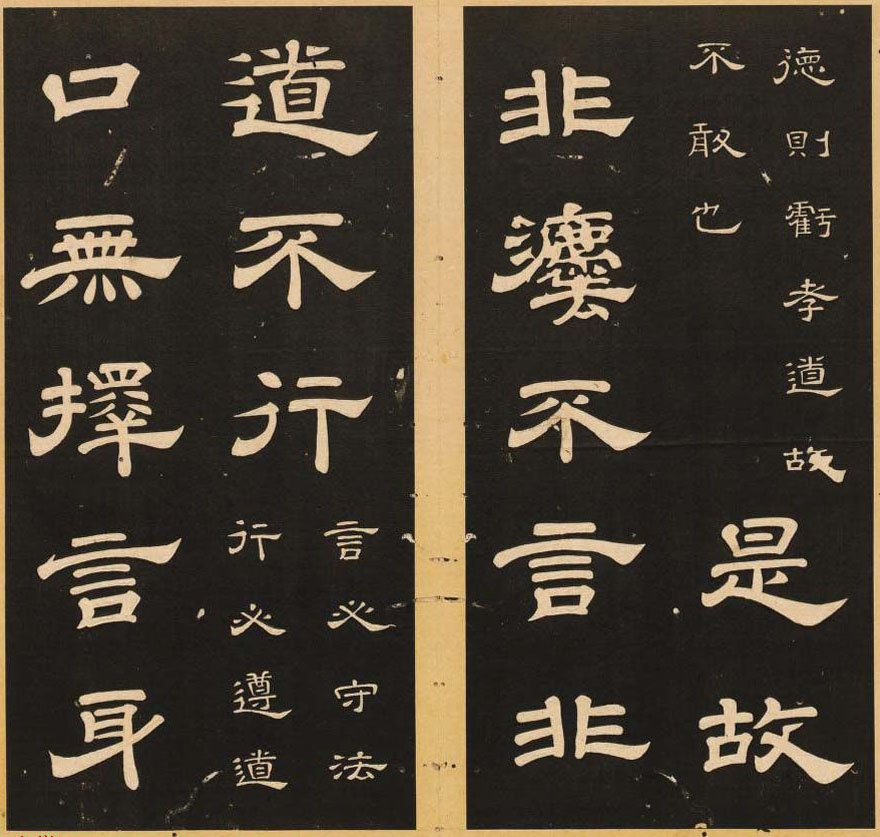 德則虧孝道故
不敢也
是故
非灋不言非
道不行
言必守法
行必遵道
口無擇言身